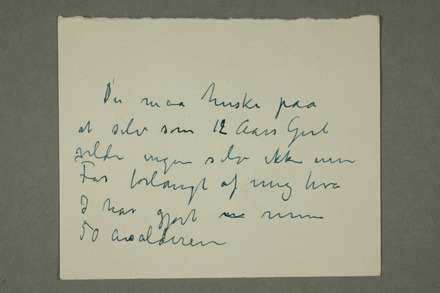 Du maa huske paa
at selv som 12 Aars Gut
vilde ingen selv ikke min
Far forlangt af mig hva
I har gjort min
50 aarsalderen